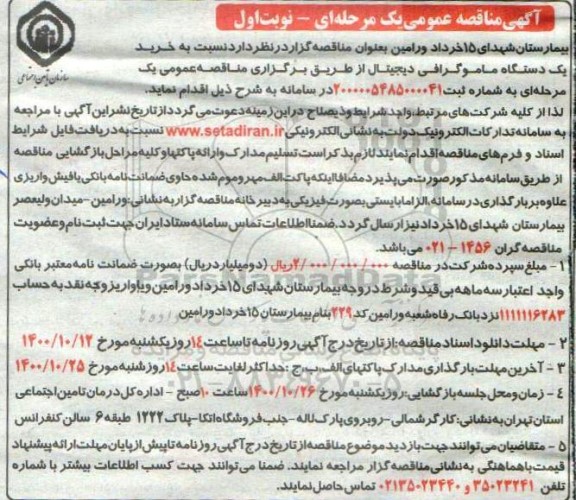 آگهی مناقصه عمومی یک مرحله‌ای - نوبت اول
سازمان تأمین اجتماعی
بیمارستان شهدای ۱۵ خرداد ورامین بعنوان مناقصه گزار در نظر دارد نسبت به خرید
یک دستگاه ماموگرافی دیجیتال از طریق برگزاری مناقصه عمومی یک
مرحله‌ای به شماره ثبت ۲۰۰۰۰۰۵۴۸۵۰۰۰۰۴۱ در سامانه به شرح ذیل اقدام نماید.
لذا از کلیه شرکت‌های مرتبط واجد شرایط و ذیصلاح در این زمینه دعوت می گردد از تاریخ نشر این آگهی با مراجعه
به سامانه تدارکات الکترونیک دولت به نشانی الکترونیکی www.setadiran.ir نسبت به دریافت فایل شرایط
اسناد و فرم‌های مناقصه اقدام نمایند لازم بذکر است تسلیم مدارک و ارائه پاکتها و کلیه مراحل بازگشایی مناقصه
از طریق سامانه مذکور صورت می پذیرد مضافا اینکه پاکت الف مهر و موم شده حاوی ضمانت نامه بانکی یا فیش واریزی
علاوه بر بارگذاری در سامانه، الزاما بایستی بصورت فیزیکی به دبیرخانه مناقصه گزار به نشانی: ورامین - میدان ولیعصر
بیمارستان شهدای ۱۵ خرداد نیز ارسال گردد. ضمنا اطلاعات تماس سامانه ستاد ایران جهت ثبت نام و عضویت
مناقصه گران ۱۴۵۶ - ۰۲۱ می باشد.
۱- مبلغ سپرده شرکت در مناقصه ۲/۰۰۰/۰۰۰/۰۰۰ ریال (دو میلیارد ریال) بصورت ضمانت نامه معتبر بانکی
واجد اعتبار سه ماهه بی قید و شرط در وجه بیمارستان شهدای ۱۵ خرداد ورامین و یا واریز وجه نقد به حساب
۱۱۱۱۱۱۶۲۸۳ نزد بانک رفاه شعبه ورامین کد ۲۲۹ بنام بیمارستان ۱۵ خرداد ورامین
۲- مهلت دانلود اسناد مناقصه: از تاریخ درج آگهی روزنامه تا ساعت ۱۴ روز یکشنبه مورخ ۱۴۰۰/۱۰/۱۲
۳- آخرین مهلت بارگذاری مدارک پاکتهای الف، ب، ج: حداکثر لغایت ساعت ۱۴ روز شنبه مورخ ۱۴۰۰/۱۰/۲۵
۴- زمان و محل جلسه بازگشایی: روز یکشنبه مورخ ۱۴۰۰/۱۰/۲۶ ساعت ۱۰ صبح - اداره کل درمان تامین اجتماعی
استان تهران به نشانی: کارگر شمالی - روبروی پارک لاله - جنب فروشگاه اتکا - پلاک ۱۲۲۲ طبقه ۶ سالن کنفرانس
۵- متقاضیان می توانند جهت بازدید موضوع مناقصه از تاریخ درج آگهی روزنامه تا پیش از پایان مهلت ارائه پیشنهاد
قیمت با هماهنگی به نشانی مناقصه گزار مراجعه نمایند. ضمنا می توانند جهت کسب اطلاعات بیشتر با شماره
تلفن ۳۵۰۲۳۲۴۱ و ۰۲۱۳۵۰۲۳۴۴۰ تماس حاصل نمایند.